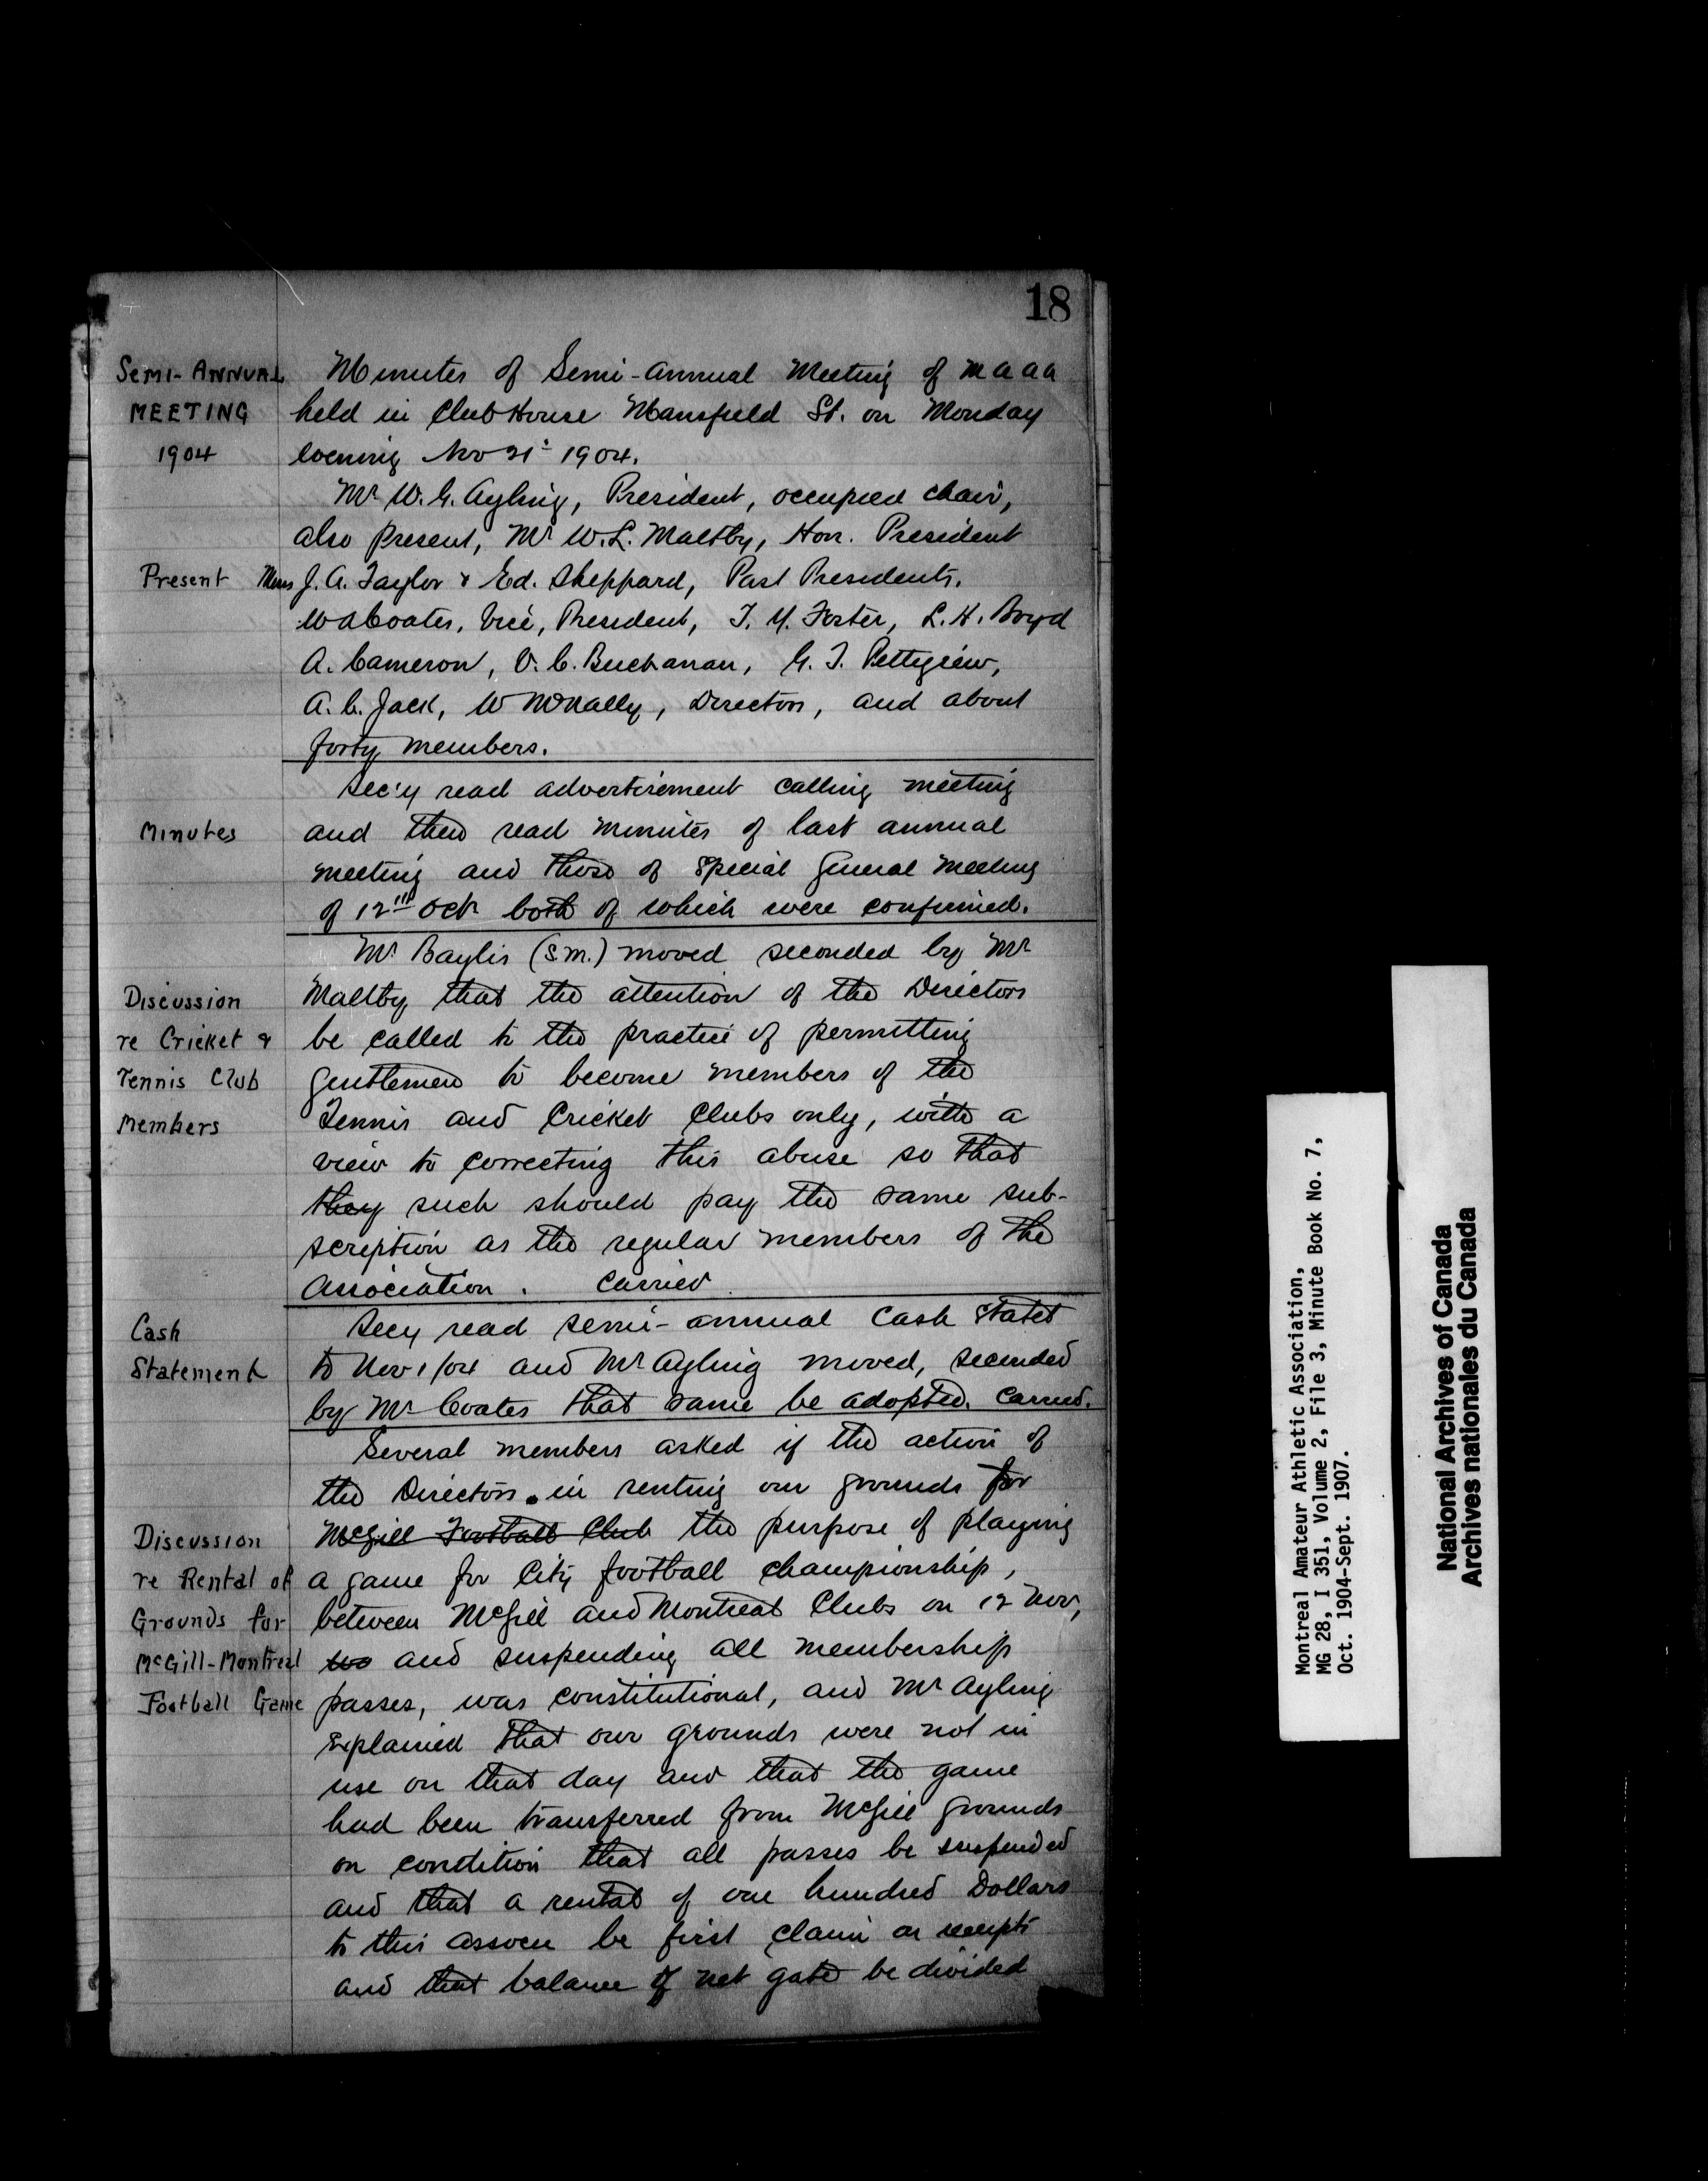 18
SEMI-ANNUAL
MEETING
1904
Minutes of Semi-Annual Meeting of M A A A
held in Club House Mansfield St. on Monday
evening Nov 21st 1904.
Mr W. G. Ayling, President, occupied chair,
also present, Mr W. L. Maltby, Hon. President
Present
Messrs J. A. Taylor & Ed. Sheppard, Past Presidents.
W A Coates, Vice, President, T. Y. Foster, L. H. Boyd
A. Cameron, V. C. Buchanan, G. T. Pettigrew,
A. C. Jack, W McNally, Directors, and about
forty members.
Minutes
Sec'y read advertisement calling meeting
and then read minutes of last annual
meeting and those of Special General Meeting
of 12th Oct both of which were confirmed.
Discussion
re Cricket &
Tennis Club
Members
Mr Baylis (S.M.) moved seconded by Mr
Maltby that the attention of the Directors
be called to the practice of permitting
gentlemen to become members of the
Tennis and Cricket Clubs only, with a
view to correcting this abuse so that
they such should pay the same sub-
scription as the regular members of the
Association. Carried
Cash
Statement
Secy read semi-annual Cash Statet
to Nov 1/04 and Mr Ayling moved, seconded
by Mr Coates that same be adopted. Carried.
Discussion
re Rental of
Grounds for
McGill-Montreal
Football Game
Several members asked if the action of
the Directors in renting our grounds for
McGill Football Club the purpose of playing
a game for City football championship,
between McGill and Montreal Clubs on 12 Nov,
and suspending all membership
passes, was constitutional, and Mr Ayling
explained that our grounds were not in
use on that day and that the game
had been transferred from McGill grounds
on condition that all passes be suspended
and that a rental of one hundred Dollars
to this assocn be first claim on receipts
and that balance of net gate be divided
Montreal Amateur Athletic Association,
MG 28, I 351, Volume 2, File 3, Minute Book No. 7,
Oct. 1904-Sept. 1907.
National Archives of Canada
Archives nationales du Canada